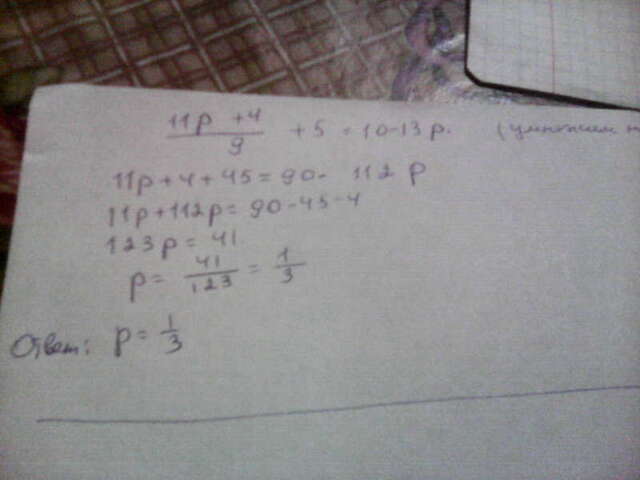 11p + 4 / 9 + 5 = 10 - 13p. (умножим
11p + 4 + 45 = 90 - 112 p
11p + 112p = 90 - 45 - 4
123p = 41
p = 41/123 = 1/3
Ответ: p = 1/3